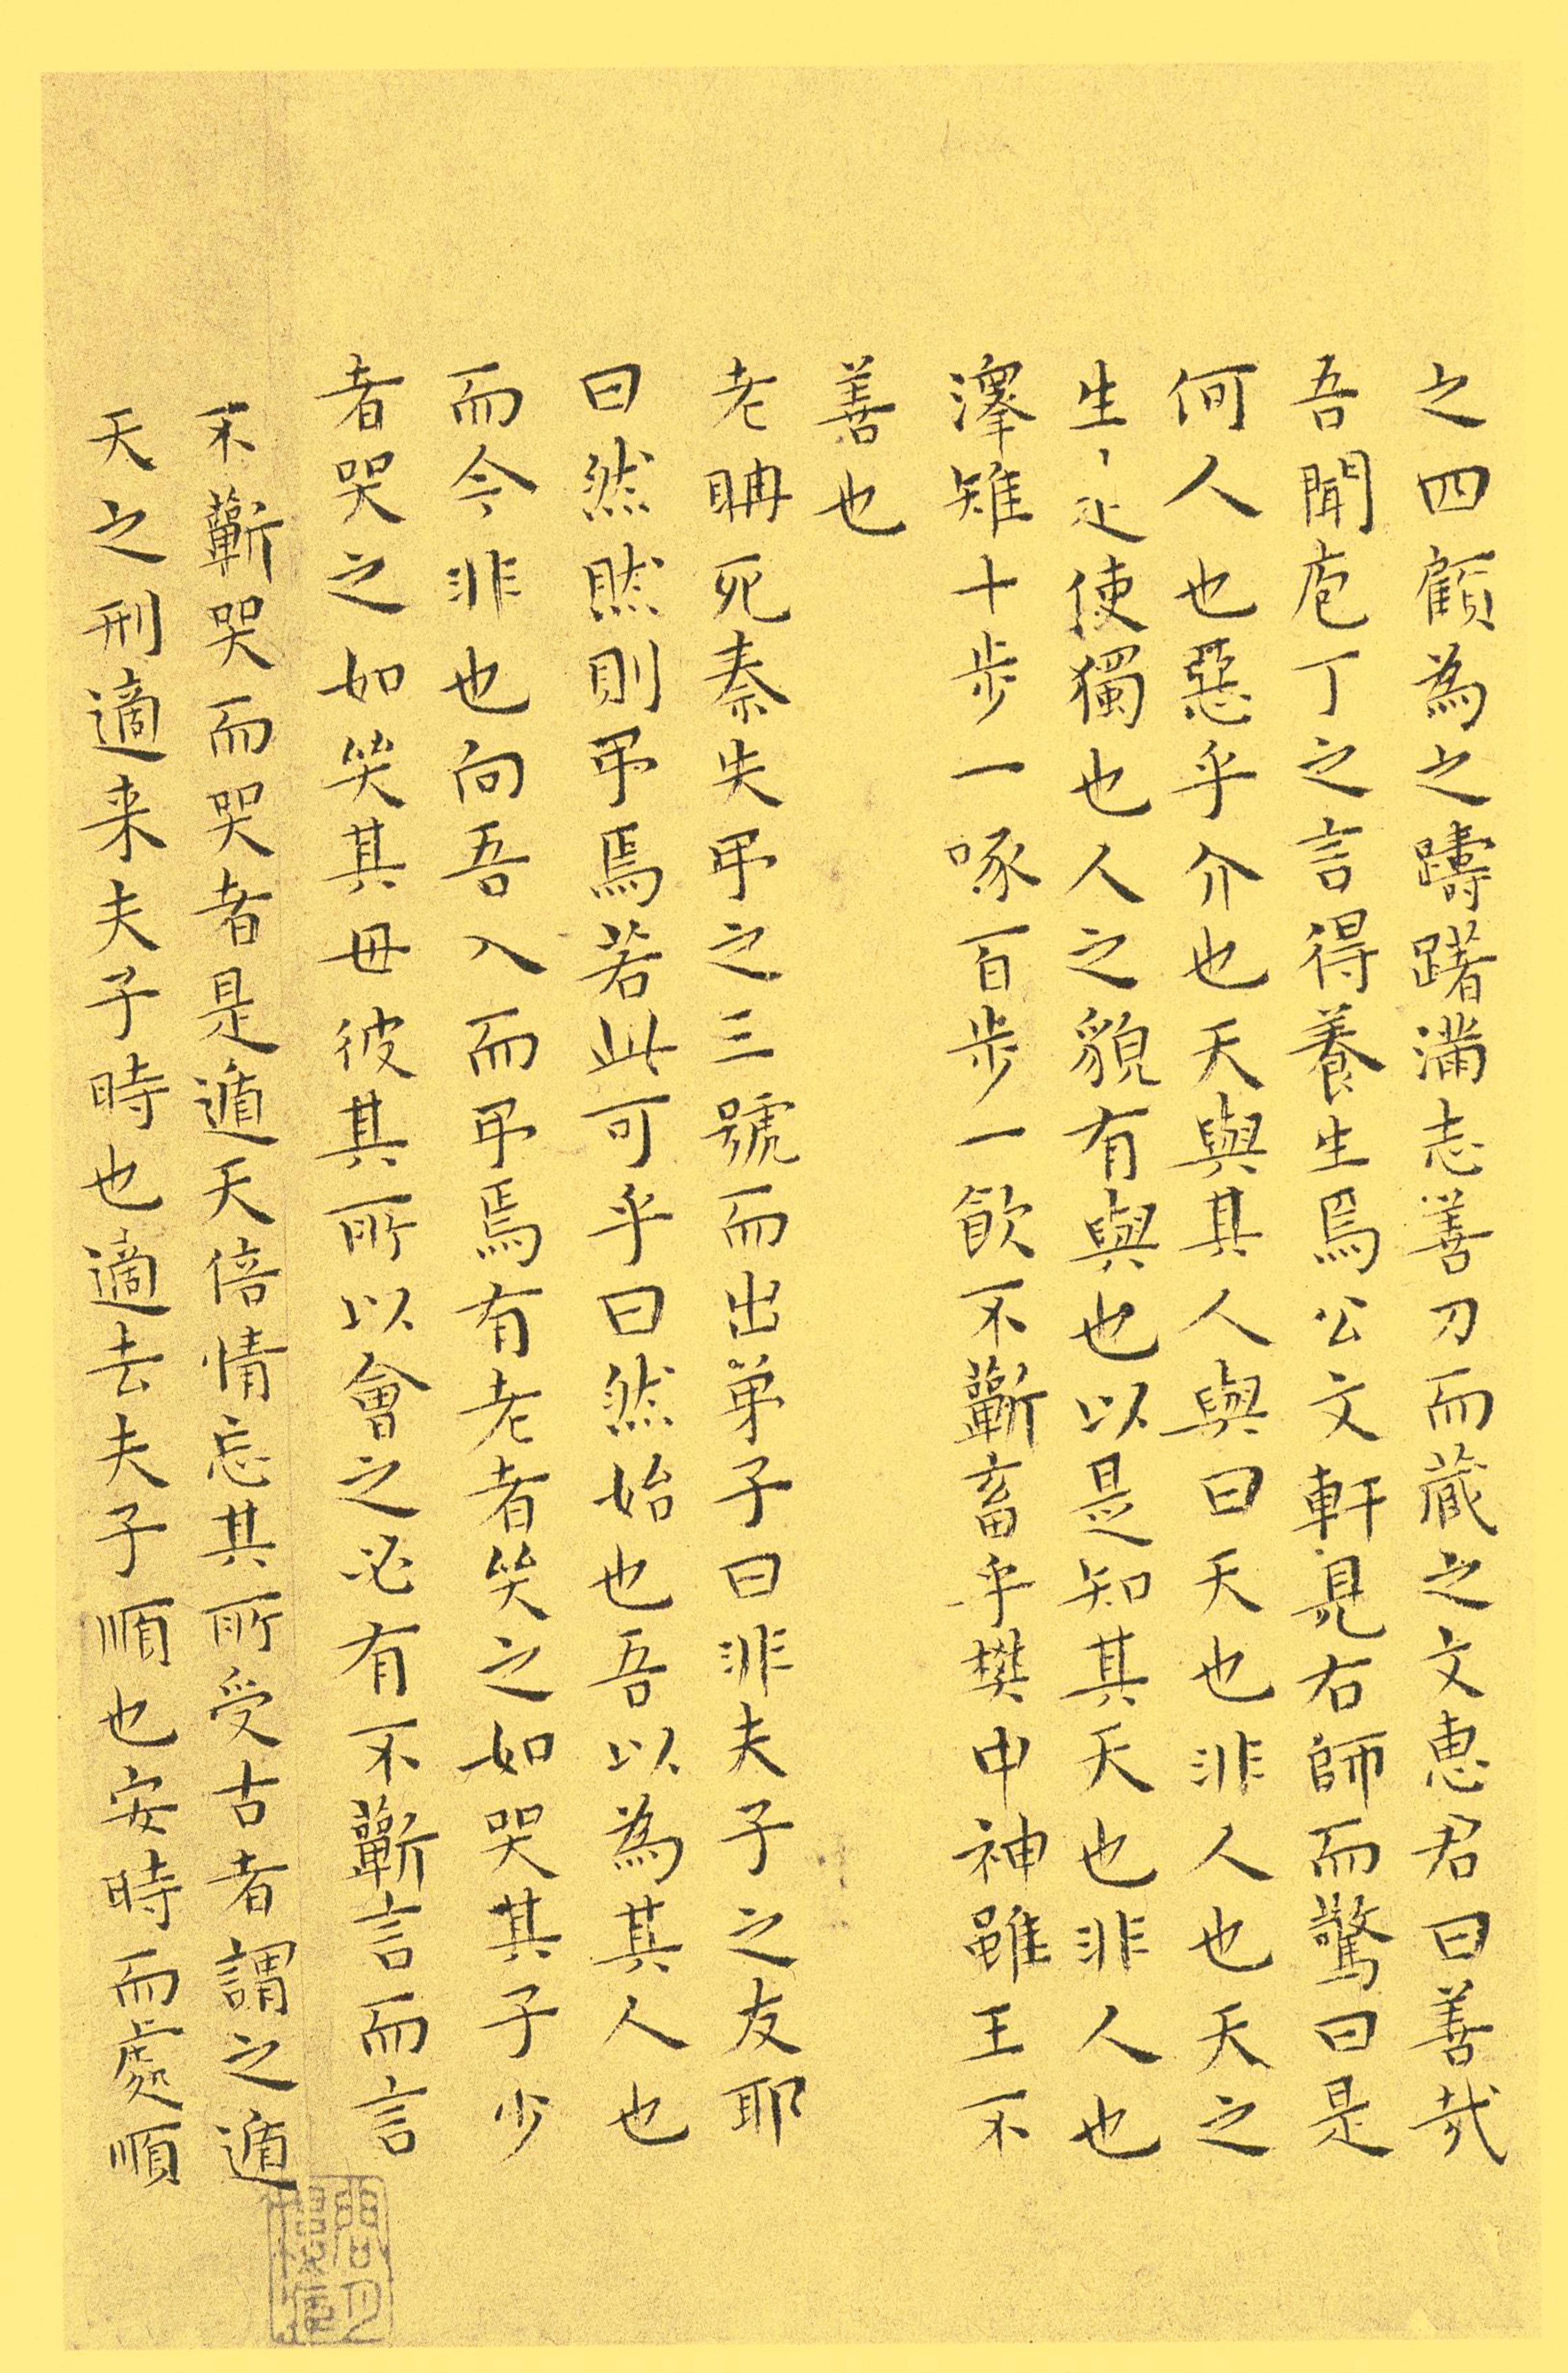 之四顧為之躊躇滿志善刀而藏之文惠君曰善哉
吾聞庖丁之言得養生焉公文軒見右師而驚曰是
何人也惡乎介也天與其人與曰天也非人也天之
生、是使獨也人之貌有與也以是知其天也非人也
澤雉十步一啄百步一飲不蘄畜乎樊中神雖王不
善也
老聃死秦失弔之三號而出弟子曰非夫子之友耶
曰然然則弔焉若此可乎曰然始也吾以為其人也
而今非也向吾入而弔焉有老者笑之如哭其子少
者哭之如笑其母彼其所以會之必有不蘄言而言
不蘄哭而哭者是遁天倍情忘其所受古者謂之遁
天之刑適来夫子時也適去夫子順也安時而處順